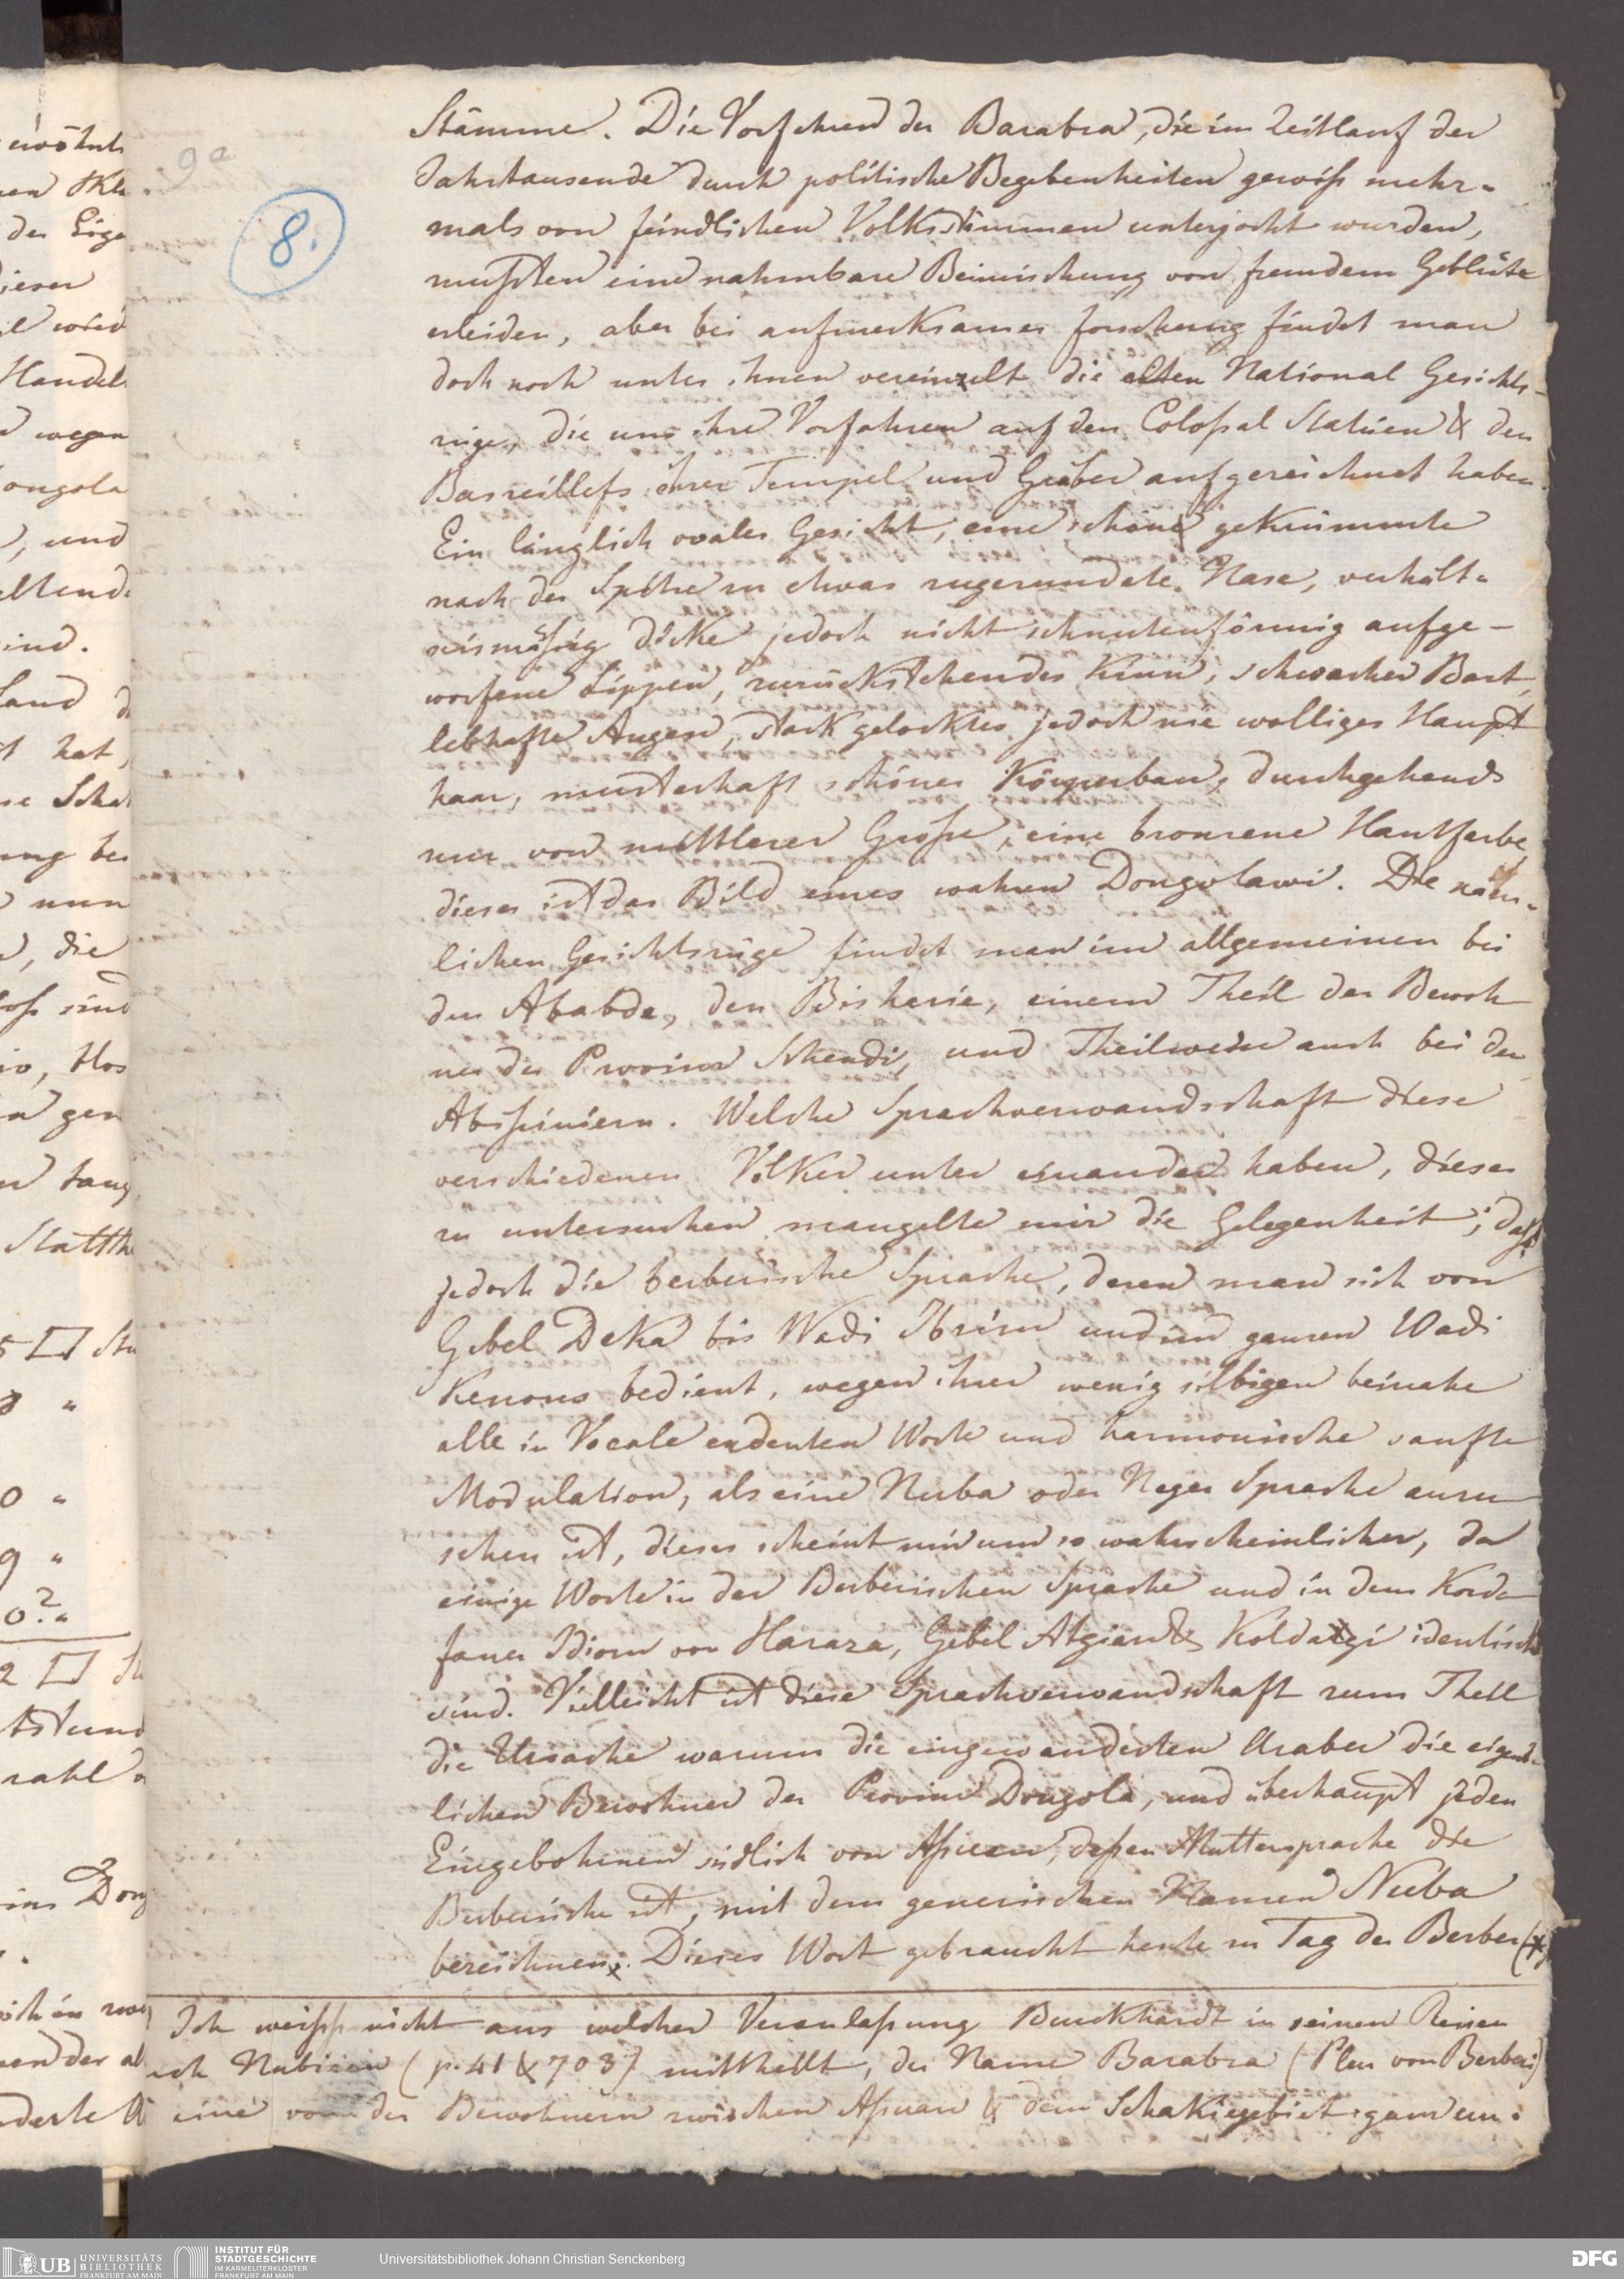 9a
8.
Stämme. Die Vorfahren der Barabra, die im Zeitlauf der
Jahrtausende durch politische Begebenheiten gewiß mehr-
mals von feindlichen Volksstämmen unterjocht wurden,
mußten eine nahmbare Beimischung von fremdem Geblüte
erleiden, aber bei aufmerksamer forschung findet man
doch noch unter ihnen vereinzelt die alten National Gesichts-
züge, die uns ihre Vorfahren auf den Coloßal Statüen & den
Basreillefs ihrer Tempel und Gräber aufgezeichnet haben.
Ein länglich ovales Gesicht, eine schöne gekrümmte
nach der Spitze zu etwas zugerundete Nase, verhält-
nismäßig dicke jedoch nicht schnutenförmig aufge-
worfene Lippen, zurückstehendes Kinn, schwacher Bart,
lebhafte Augen, stark gelocktes jedoch nie wolliges Haupt
haar, musterhaft schöner Körperbau, durchgehends
nur von mittlerer Größe, eine bronzene Hautfarbe,
dieses ist das Bild eines wahren Dongolawi. Die näm-
lichen Gesichtszüge findet man im allgemeinen bei
den Ababde, den Bisharie, einem Theil der Bewoh
ner der Provinz Schendi, und Theilweise auch bei den
Abißiniern. Welche Sprachverwandschaft diese
verschiedenen Völker unter einander haben, dieses
zu untersuchen mangelte mir die Gelegenheit; daß
jedoch die berberische Sprache, deren man sich von
Gebel Deka bis Wadi Ibrim und im ganzen Wadi
Kenous bedient, wegen ihrer wenig silbigen beinahe
alle in Vocale endenten Worte und harmonische sanfte
Modulation, als eine Nuba oder Neger Sprache anzu
sehen ist, dieses scheint mir um so wahrscheinlicher, da
einige Worte in der Berberischen Sprache und in dem Kordo
faner Idiom von Haraza, Gebel Algian & Koldagi identisch
sind. Vielleicht ist diese Sprachverwandschaft zum Theil
die Ursache warum die eingewanderten Araber die eigent-
lichen Bewohner der Provinz Dongola, und überhaupt jeden
Eingebohrnen südlich von Aßuan, deßen Muttersprache die
Berberische ist, mit dem generischen Namen Nuba
bezeichnen. Dieses Wort gebraucht heute zu Tag der Berber (*)
Ich weiß nicht aus welcher Veranlaßung Burckhardt in seinen Reisen
nach Nubien (p. 41 & 703) mittheilt, der Name Barabra (Plur von Berberi)
eine von den Bewohnern zwischen Aßuan & dem Schakiegebiet ganz un-
UB UNIVERSITÄTS
BIBLIOTHEK
FRANKFURT AM MAIN
INSTITUT FÜR
STADTGESCHICHTE
IM KARMELITERKLOSTER
FRANKFURT AM MAIN
Universitätsbibliothek Johann Christian Senckenberg
DFG